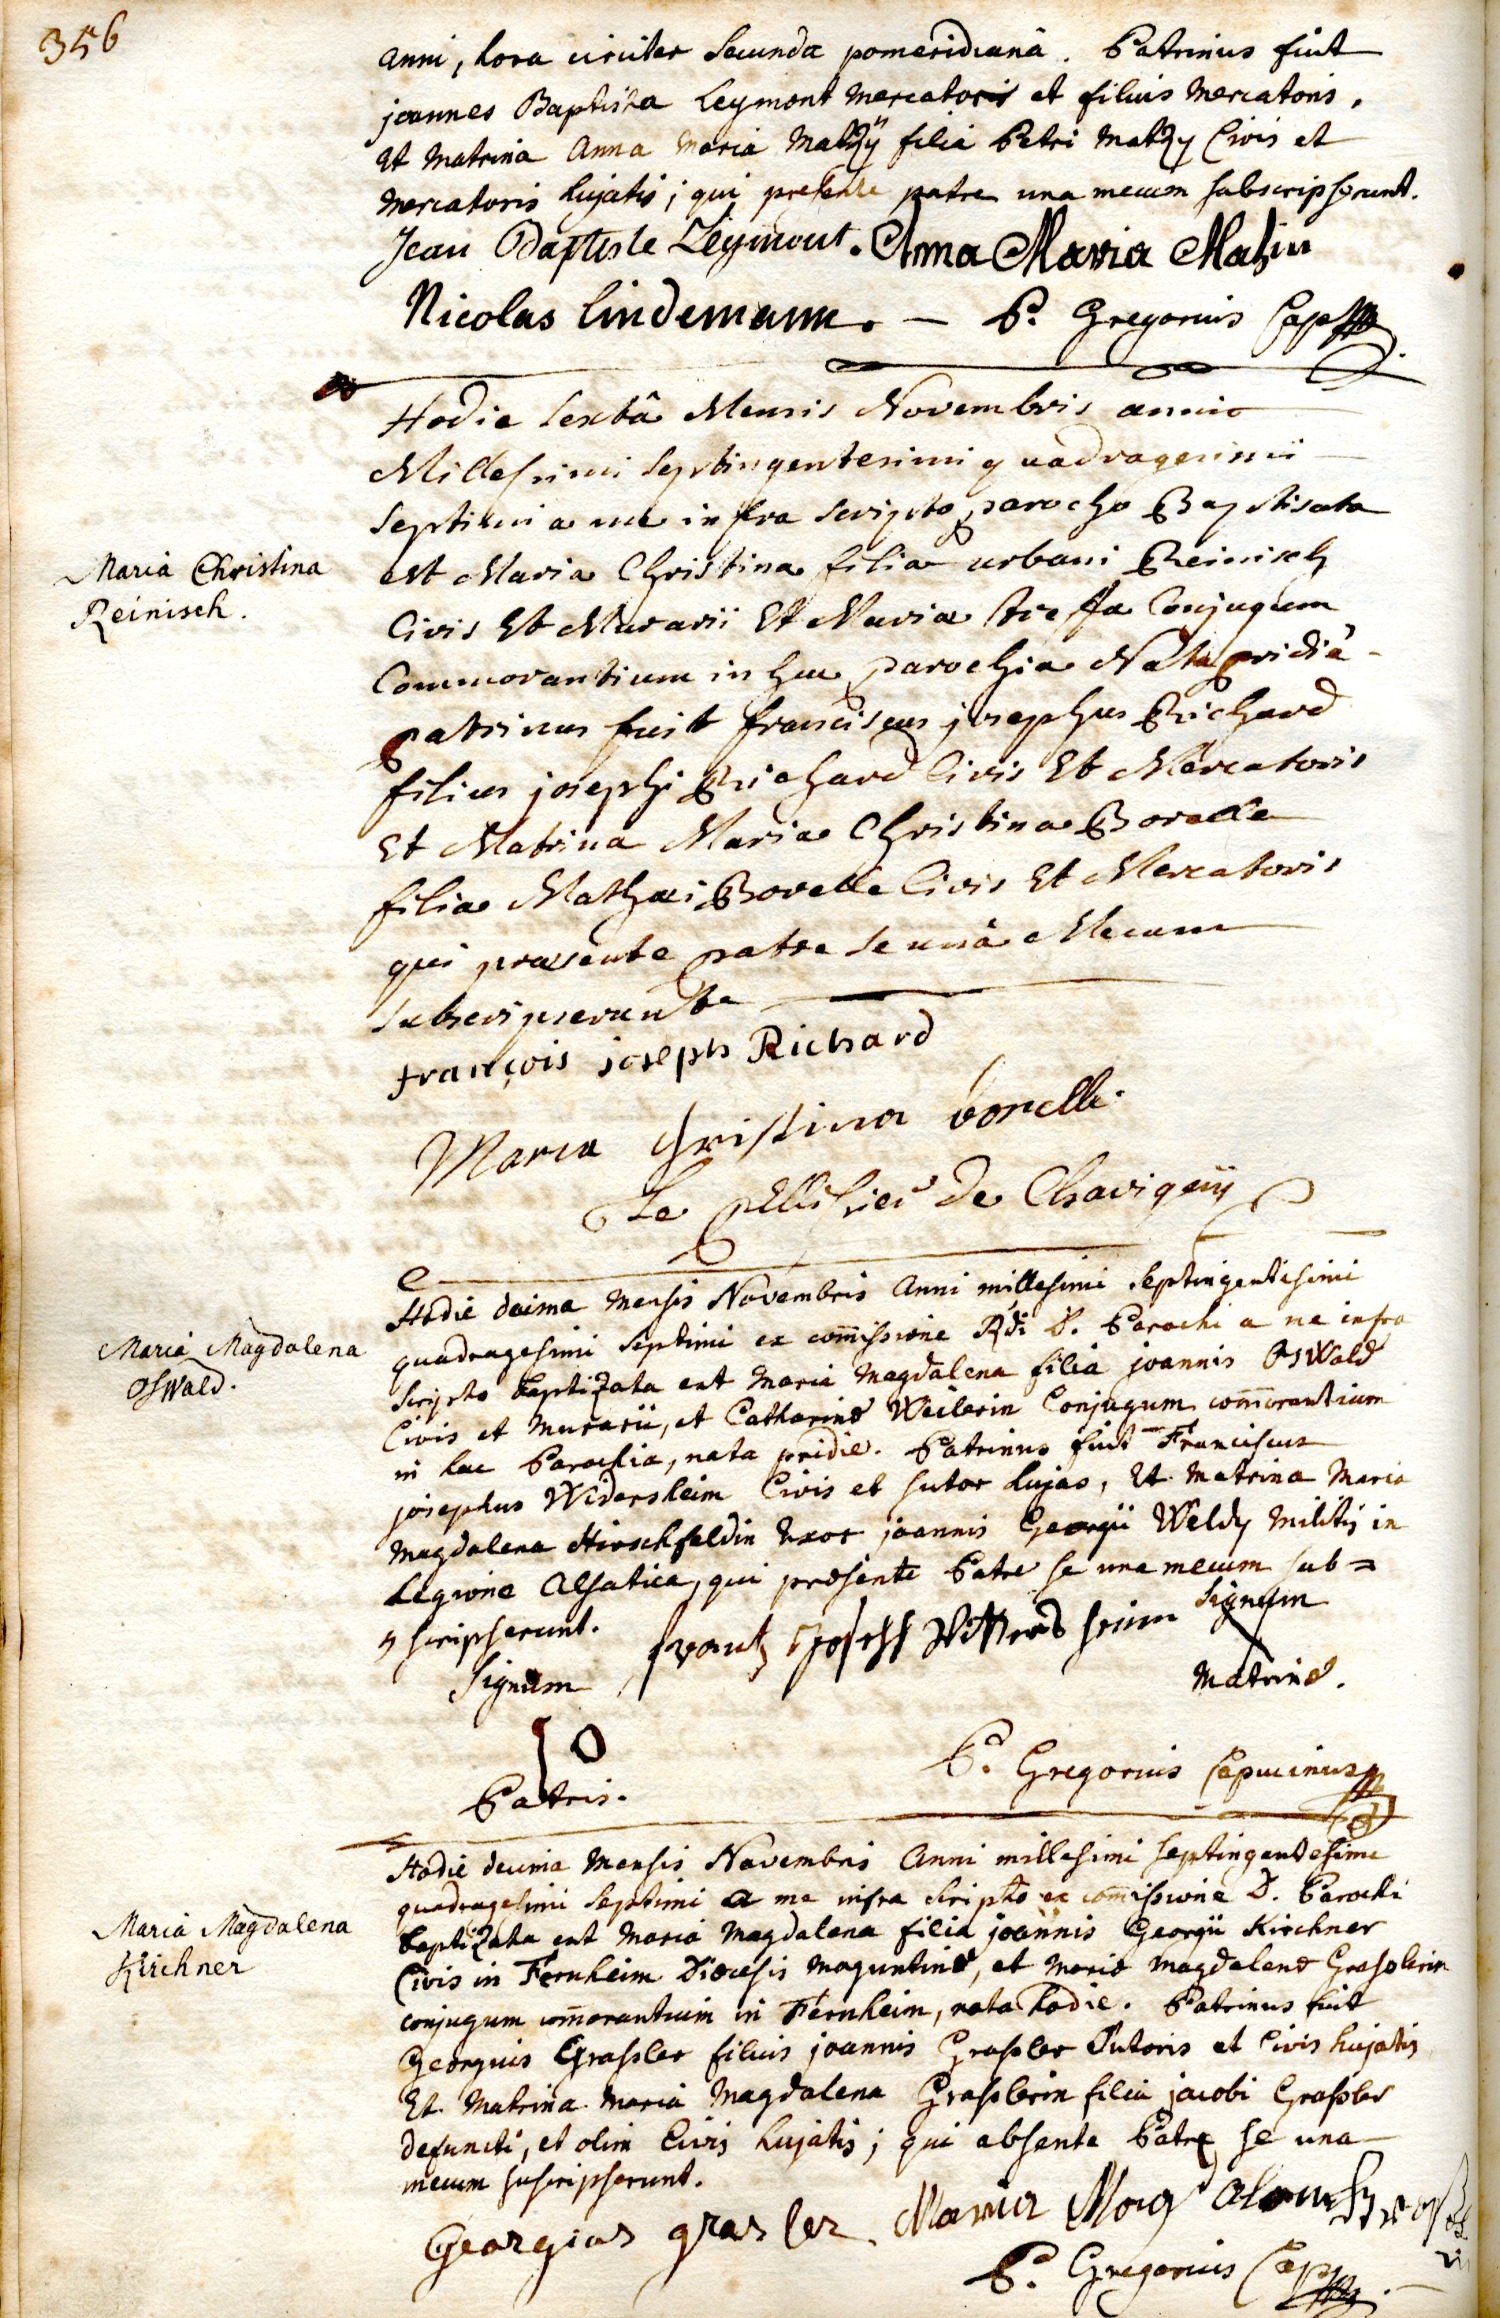 356
anni, hora circiter secunda pomeridianâ. Patrinus fuit
joannes Baptista Leymont mercatoris et filius mercatoris,
et matrina Anna Maria Matzÿ filia Petri Matzy Civis et
mercatoris hujatis; qui presente patre una mecum subscripserunt.
Jean Baptiste Leymont. Anna Maria Matzin
Nicolas lindemann. — P. Gregorius Cap
Hodie sextâ Mensis Novembris anni
Millesimi septingentesimi quadragesimi
septimi a me infra scripto parocho Baptisata
Maria Christina
Reinisch.
est Maria Christina filia urbani Reinisch
Civis Et Murarii Et Maria Conjugum
Commorantium in hac parochia Nata pridiè
patrinus fuit franciscus josephus Richard
filius josephi Richard Civis Et Mercatoris
Et Matrina Maria Christina Borelle
filia Mathæi Borelle Civis Et Mercatoris
qui præsente patre se unâ Mecum
subscripserunt
françois joseph Richard
Maria Christina borelle.
Le pellissier de Chavigny
Hodie decima mensis Novembris Anni millesimi septingentesimi
quadragesimi septimi ex com̄issione Rdi D. Parochi a me infra
Maria Magdalena
Osswald.
scripto baptizata est Maria Magdalena filia joannis Oswald
Civis et murarii, et Catharinæ Weilerin Conjugum com̄orantium
in hac Parochia, nata pridie. Patrinus fuit Franciscus
josephus Widersheim Civis et sutor hujas, Et matrina Maria
Magdalena Hirschfeldin uxor joannis Georgii Weldy militis in
Legione Alsatica, qui præsente Patre se una mecum sub=
scripserunt.
frantz Joseph Wittersheim
Signum
Matrinæ.
Signum
Patris.
P. Gregorius Capucinus
Hodie decima mensis Novembris Anni millesimi septingentesimi
quadragesimi septimi a me infra scripto ex com̄issione D. Parochi
Maria Magdalena
Kirchner
baptizata est Maria Magdalena filia joannis Georgii Kirchner
Civis in Fernheim Diœcesis moguntinæ, et Mariæ Magdalenæ Grasslerin
conjugum com̄orantium in Fernheim, nata hodie. Patrinus fuit
Georgius Grassler filius joannis Grassler Sutoris et Civis hujatis
Et Matrina Maria Magdalena Grasslerin filia jacobi Grassler
defuncti, et olim Civis hujatis; qui absente Patre se una
mecum suscripserunt.
Georgius grasler Maria Magdalena
P. Gregorius Cap